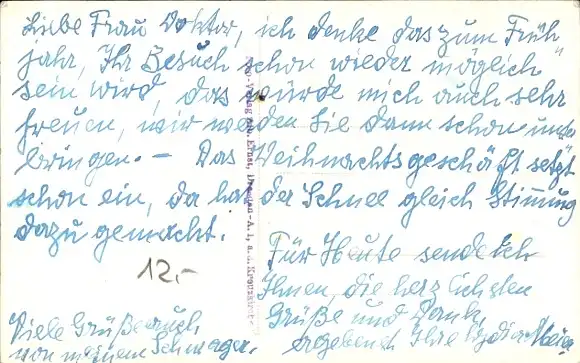 Liebe Frau Doktor, ich denke das zum Früh
jahr, Ihr Besuch schon wieder möglich
sein wird, das würde mich auch sehr
freuen, wir werden Sie dann schon unter
bringen. — Das Weihnachtsgeschäft setzt
schon ein, da hat der Schnee gleich Stimmung
dazu gemacht.
Für Heute sende ich
Ihnen, die herzlichsten
Grüße und Dank,
ergebenst Ihre
12,-
Viele Grüße auch
von meinem Schwager.